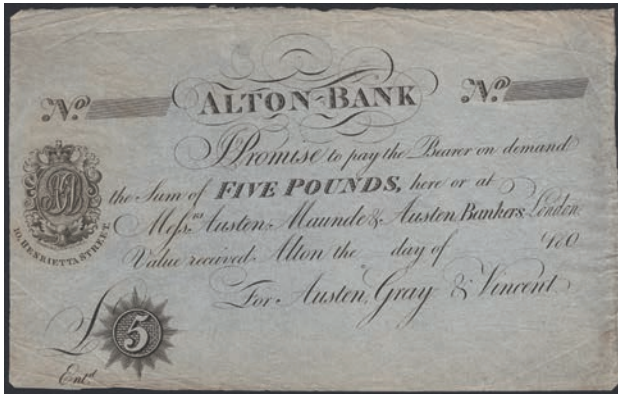 No. No.
ALTON BANK
I Promise to pay the Bearer on demand
the Sum of FIVE POUNDS, here or at
Messrs Austen, Maunde & Austen, Bankers, London.
Value received Alton the day of 180
For Austen, Gray & Vincent
10, HENRIETTA STREET.
£ 5
Entd